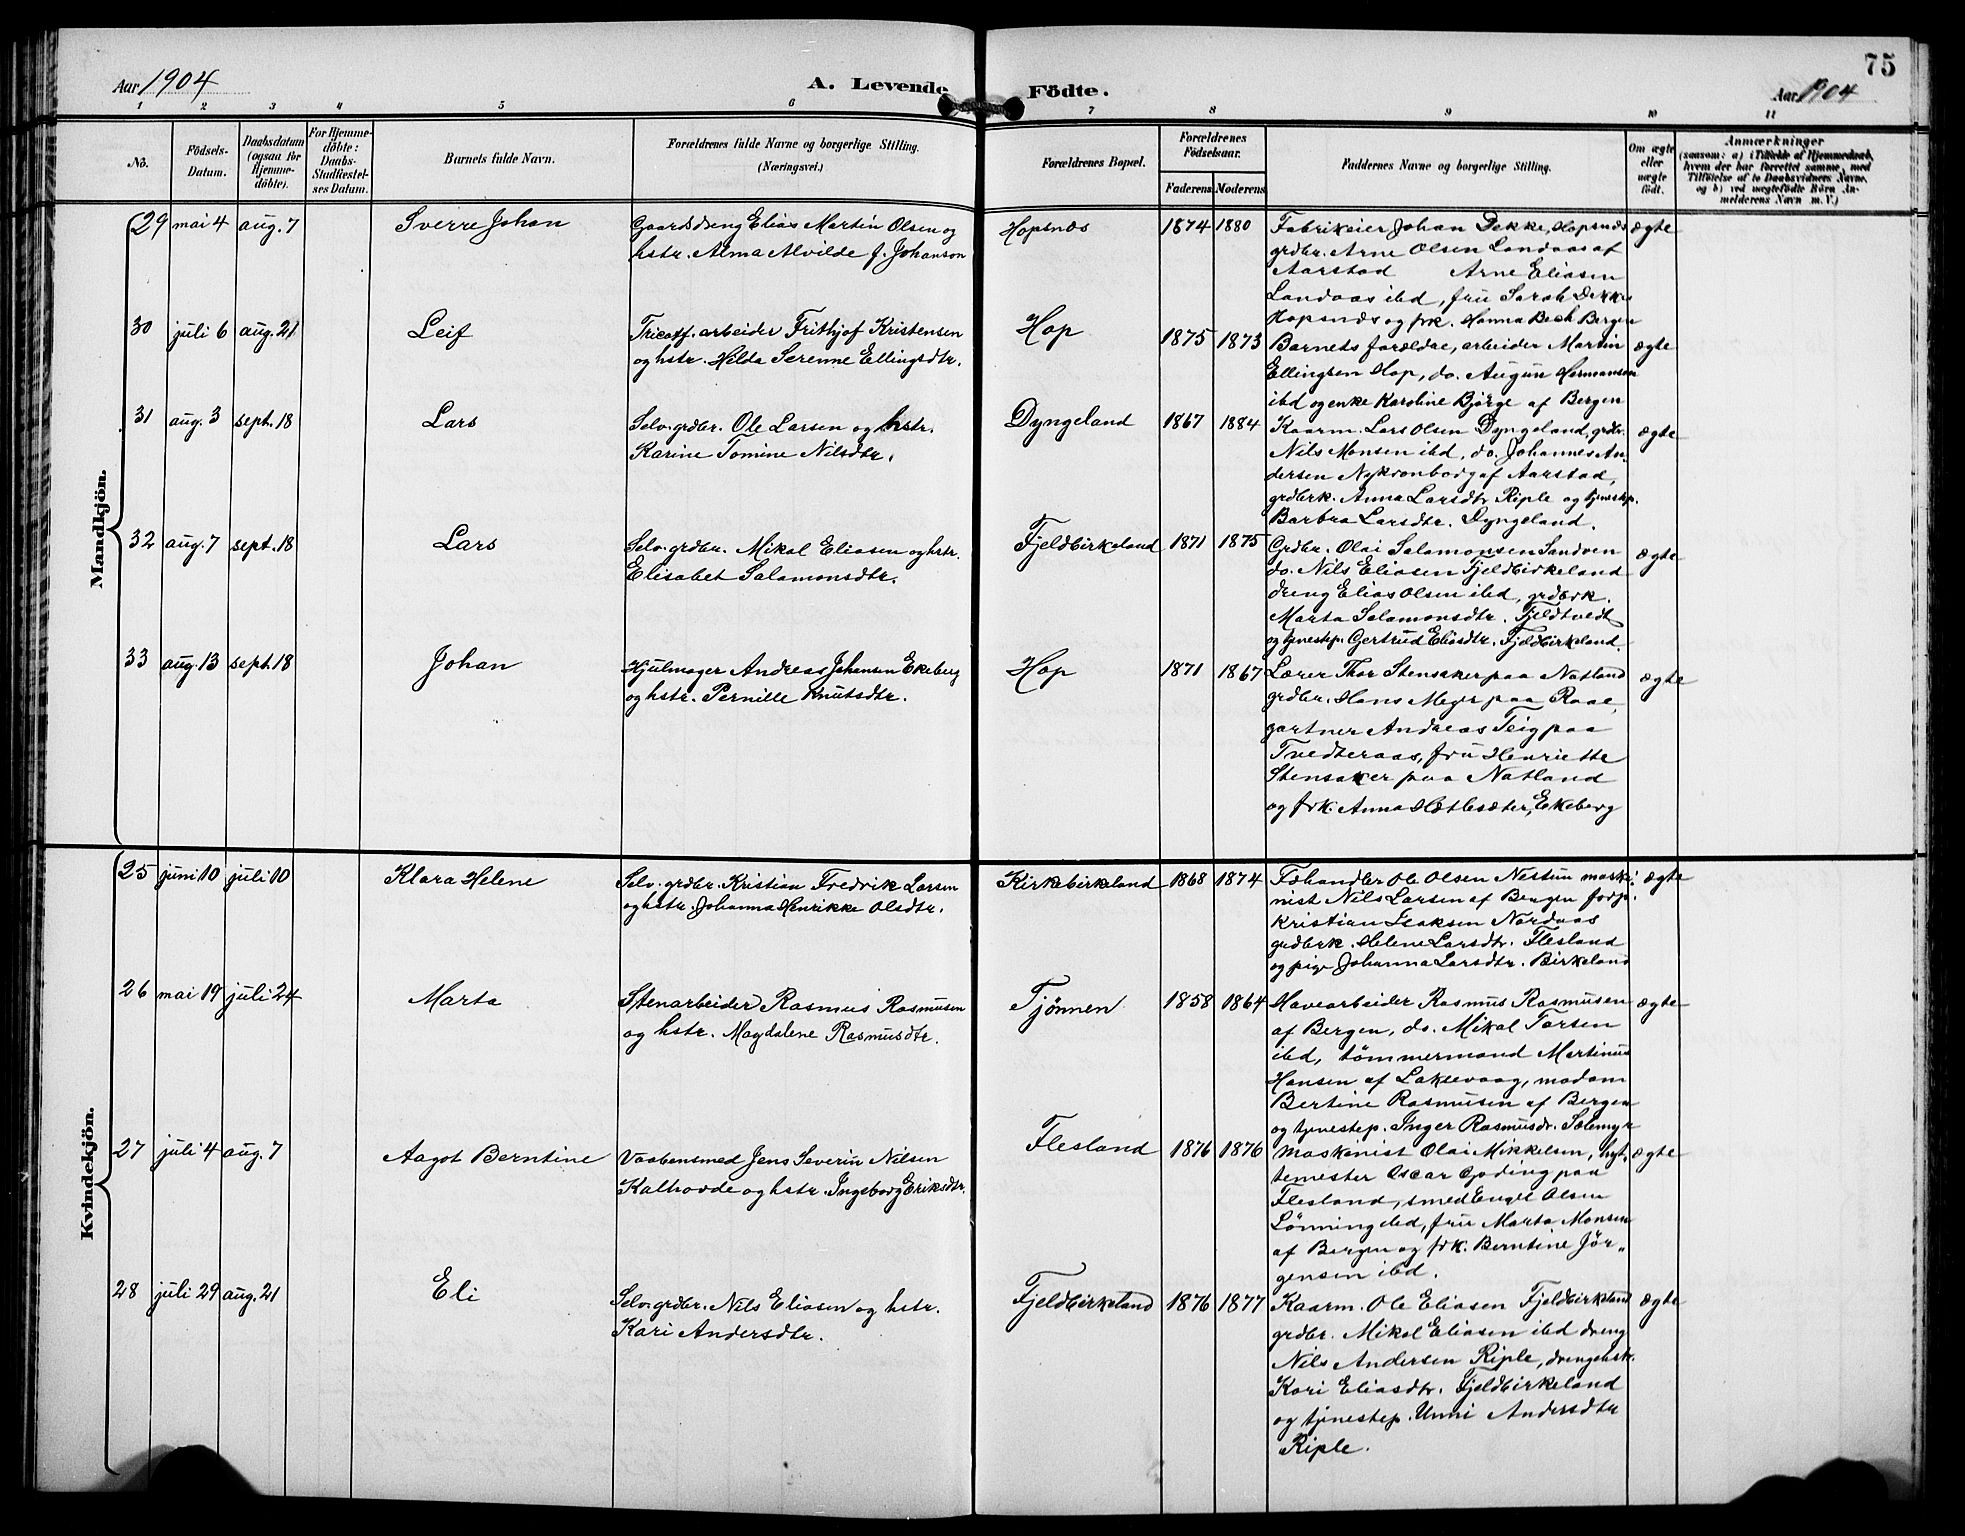 75
Aar 1904
A. Levende Födte.
Aar 1904
1 2 3 4 5 6 7 8 9 10 11
No.
Födsels-Datum.
Daabsdatum (ogsaa for Hjemme-döbte).
For Hjemme-döbte: Daabs-Stadfæstel-ses Datum.
Barnets fulde Navn.
Forældrenes fulde Navne og borgerlige Stilling.
(Næringsvei.)
Forældrenes Bopæl.
Forældrenes Födselsaar.
Faderens Moderens
Faddernes Navne og borgerlige Stilling.
Om ægte eller uægte födt.
Anmærkninger
(saasom: a) i Tilfælde af Hjemmedaab,
hvem der har forrettet samme, med
Tilföielse af to Daabsvidners Navne,
og b) ved uægtefödte Börn An-
melderens Navn m. V.)
Mandkjön.
29 mai 4 aug. 7 Sverre Johan
Gaardsdreng Elias Martin Olsen og
hstr. Alma Alvilde f. Johanson
Hopsnæs 1874 1880
Fabrikeier Johan Dekke, Hopsnæs
grdbr. Arne Olsen Landaas af
Aarstad Arne Eliasen
Landaas ibd, fru Sarah Dekke
Hopsnæs og frk. Hanna Bech Bergen
ægte
30 juli 6 aug. 21 Leif
Tricotf. arbeider Frithjof Kristensen
og hstr. Hilda Serenne Ellingsdtr.
Hop 1875 1873
Barnets forældre, arbeider Martin
Ellingsen Hop, do. Augun Hermansen
ibd og enke Karoline Bjørge af Bergen
ægte
31 aug. 3 sept. 18 Lars
Selv. grdbr. Ole Larsen og hstr.
Karine Tomine Nilsdtr.
Dyngeland 1867 1884
Kaarm. Lars Olsen Dyngeland, grdbr.
Nils Monsen ibd, do. Johannes An-
dersen Nykronborg af Aarstad,
grdbrk. Anna Larsdtr Riple og tjenestep.
Barbra Larsdtr. Dyngeland.
ægte
32 aug. 7 sept. 18 Lars
Selv. grdbr. Mikal Eliasen og hstr.
Elisabet Salamonsdtr.
Fjeldbirkeland 1871 1875
Grdbr. Olai Salamonsen Sandven
do. Nils Eliasen Fjeldbirkeland
dreng Elias Olsen ibd, grdbrk.
Marta Salamonsdtr. Fjeldtvedt
og tjenestep. Gertrud Eliasdtr. Fjeldbirkeland.
ægte
33 aug. 13 sept. 18 Johan
Hjulmager Andreas Johansen Ekeberg
og hstr. Pernille Knutsdtr.
Hop 1871 1867
Lærer Thor Stensaker paa Natland
grdbr. Hans Meyer paa Raae,
gartner Andreas Teig paa
Tvedteraas, fru Henriette
Stensaker paa Natland
og frk. Anna Hætlesæter, Ekeberg
ægte
Kvindekjön.
25 juni 10 juli 10 Klara Helene
Selv. grdbr. Kristian Fredrik Larsen
og hstr. Johanna Henrikke Olsdtr.
Kirkebirkeland 1868 1874
Fæhandler Ole Olsen Nestun maski-
nist Nils Larsen af Bergen forp.
Kristian Isaksen Nordaas
grdbrk. Helene Larsdtr. Flesland
og pige Johanna Larsdtr. Birkeland
ægte
26 mai 19 juli 24 Marta
Stenarbeider Rasmus Rasmusen
og hstr. Magdalene Rasmusdtr.
Tjønnen 1858 1864
Havearbeider Rasmus Rasmusen
af Bergen, do. Mikal Torsen
ibd, tømmermand Martinus
Hansen af Laksevaag, madam
Bertine Rasmusen af Bergen
og tjenestep. Inger Rasmusdr. Sælemyr
ægte
27 juli 4 aug. 7 Aagot Berntine
Vaabensmed Jens Severin Nilsen
Kalhovde og hstr. Ingeborg Eriksdtr.
Flesland 1876 1876
Maskinist Olai Mikkelsen, hyt-
temester Oscar Goding paa
Flesland, smed Engel Olsen
Lønning ibd, fru Marta Monsen
af Bergen og frk. Berntine Jør-
gensen ibd.
ægte
28 juli 29 aug. 21 Eli
Selv. grdbr. Nils Eliasen og hstr.
Kari Andersdtr.
Fjeldbirkeland 1876 1877
Kaarm. Ole Eliasen Fjeldbirkeland
grdbr. Mikal Eliasen ibd dreng
Nils Andersen Riple, drengehstr.
Kari Eliasdtr. Fjeldbirkeland
og tjenestep. Unni Andersdtr
Riple.
ægte